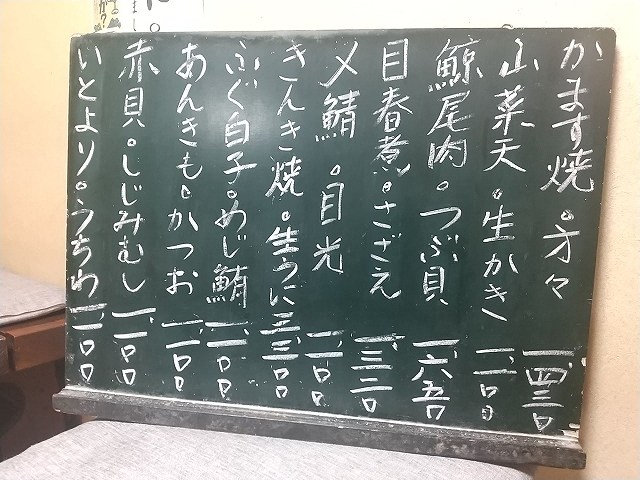 かます焼。方々 一、四三〇
山菜天。生かき 一、一〇〇
鯨尾肉。つぶ貝 一、六五〇
目春煮。さざえ 一、三二〇
〆鯖。目光 一、一〇〇
きんき焼。生うに 三、三〇〇
ふぐ白子。めじ鮪 一、一〇〇
あんきも。かつお 一、一〇〇
赤貝。しじみむし 一、一〇〇
いとより。うちわ 一、一〇〇